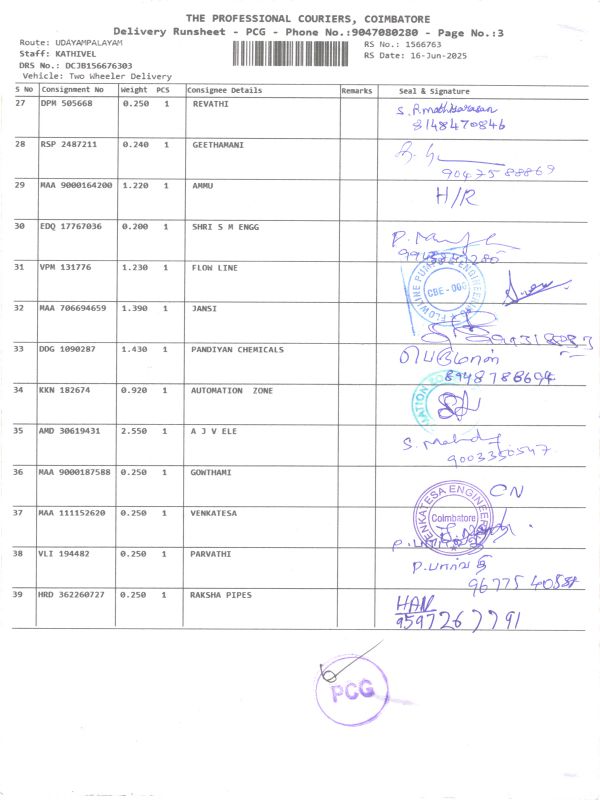 THE PROFESSIONAL COURIERS, COIMBATORE
Delivery Runsheet - PCG - Phone No.:9047080280 - Page No.:3
Route: UDAYAMPALAYAM
Staff: KATHIVEL
DRS No.: DCJB156676303
Vehicle: Two Wheeler Delivery
RS No.: 1566763
RS Date: 16-Jun-2025
S No Consignment No Weight PCS Consignee Details Remarks Seal & Signature
27 DPM 505668 0.250 1 REVATHI
8148470846
28 RSP 2487211 0.240 1 GEETHAMANI
9047588869
29 MAA 9000164200 1.220 1 AMMU H/R
30 EDQ 17767036 0.200 1 SHRI S M ENGG
31 VPM 131776 1.230 1 FLOW LINE
FLOWLINE PUMP ENGINEERING
CBE-006
32 MAA 706694659 1.390 1 JANSI
33 DDG 1090287 1.430 1 PANDIYAN CHEMICALS பெருமாள்
8948788694
34 KKN 182674 0.920 1 AUTOMATION ZONE
35 AMD 30619431 2.550 1 A J V ELE
9003350547
36 MAA 9000187588 0.250 1 GOWTHAMI CN
37 MAA 111152620 0.250 1 VENKATESA
VENKATESA ENGINEER
Coimbatore
38 VLI 194482 0.250 1 PARVATHI
39 HRD 362260727 0.250 1 RAKSHA PIPES
9597267791
PCG